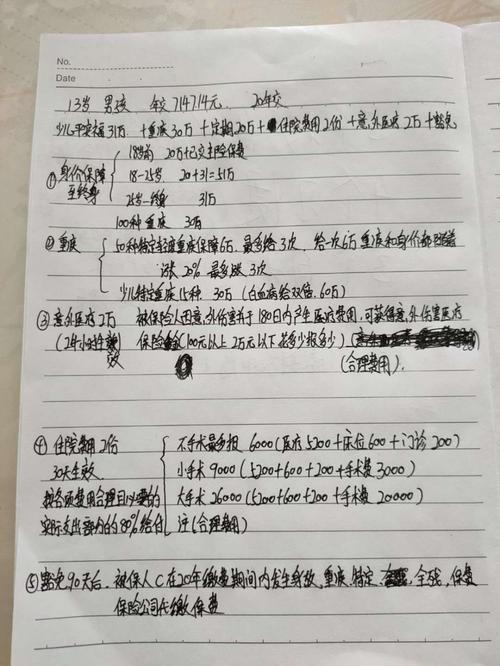 No.
Date
13岁 男孩 年交7147.14元. 20年交
少儿平安福31万 +重疾30万 +定期20万+住院费用2份 +意外医疗2万 +豁免
18岁前 20万+已交主险保费
①身价保障 18-25岁 20+31=51万
至终身 25岁-终身 31万
100种重疾 30万
②重疾 50种特定轻度重疾保障6万. 最多给3次. 给一次6万重疾和身价都跟着
涨20% 最多涨3次
少儿特定重疾15种. 30万(白血病给双倍.60万)
③意外医疗2万 被保险人因意外伤害并于180日内产生医疗费用.可获得意外伤害医疗
(24小时生效 保险金(100元以上2万元以下花多少报多少)
(合理费用).
④住院费用2份 不手术最多报 6000(医疗5200+床位600+门诊200)
30天生效. 小手术9000(5200+600+200+手术费3000)
按各项费用合理且必要的 大手术26000(5200+600+200+手术费20000)
实际支出额内的80%给付 注(合理费用)
⑤豁免90天后. 被保人C在20年缴费期间内发生身故.重疾.特定 全残.保费
保险公司代缴保费